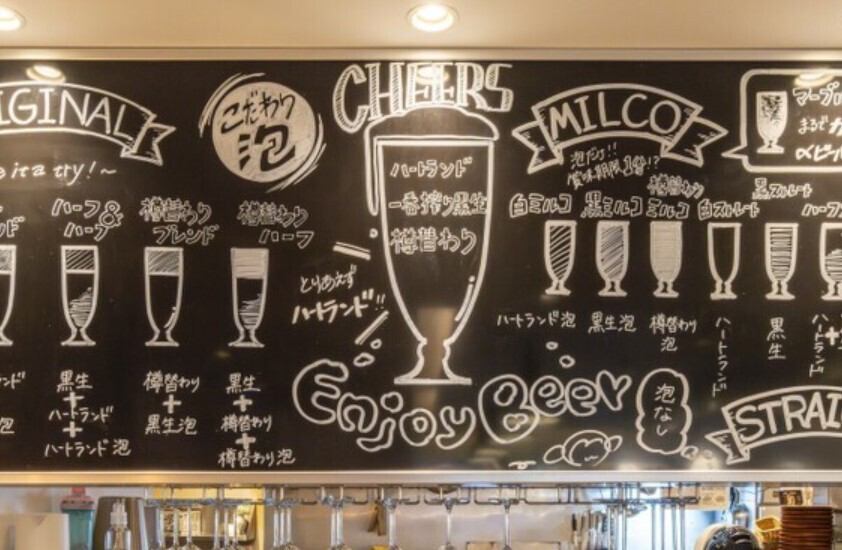 IGINAL
it a try!~
こだわり
泡
CHEERS
ハートランド
一番搾り黒生
樽替わり
とりあえず
ハートランド!!
Enjoy Beer
MILCO
泡だけ!!
賞味期限1分!?
マーブル
まるで
ハーフ&
ハーフ
樽替わり
ブレンド
樽替わり
ハーフ
白ミルコ
黒ミルコ
樽替わり
ミルコ
白ストレート
黒ストレート
ハーフ
黒生
+
ハートランド
+
ハートランド泡
樽替わり
+
黒生泡
黒生
+
樽替わり
+
樽替わり泡
ハートランド泡
黒生泡
樽替わり
泡
ハートランド
黒生
ハートランド
+
泡なし
STRAI